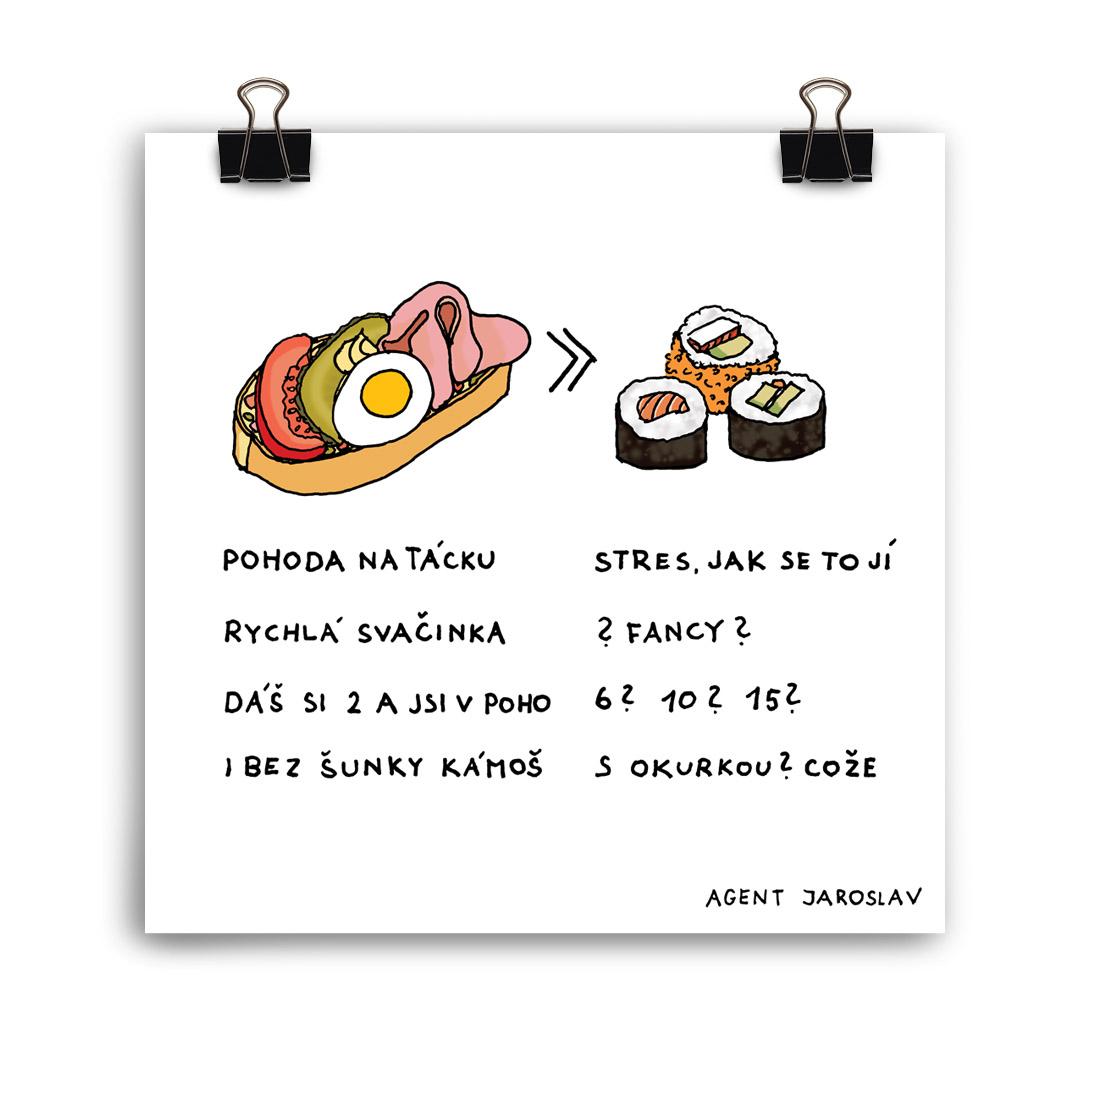 POHODA NA TÁCKU
RYCHLÁ SVAČINKA
DÁŠ SI 2 A JSI V POHO
I BEZ ŠUNKY KÁMOŠ
STRES, JAK SE TO JÍ
? FANCY ?
6? 10? 15?
S OKURKOU? COŽE
AGENT JAROSLAV